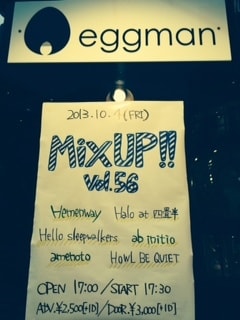 eggman
2013.10.4(FRI)
MixUP!!
Vol.56
Hemenway Halo at 四畳半
Hello sleepwalkers ab initio
amenoto HOWL BE QUIET
OPEN 17:00 / START 17:30
ADV.¥2,500[+1D] / DOOR.¥3,000[+1D]